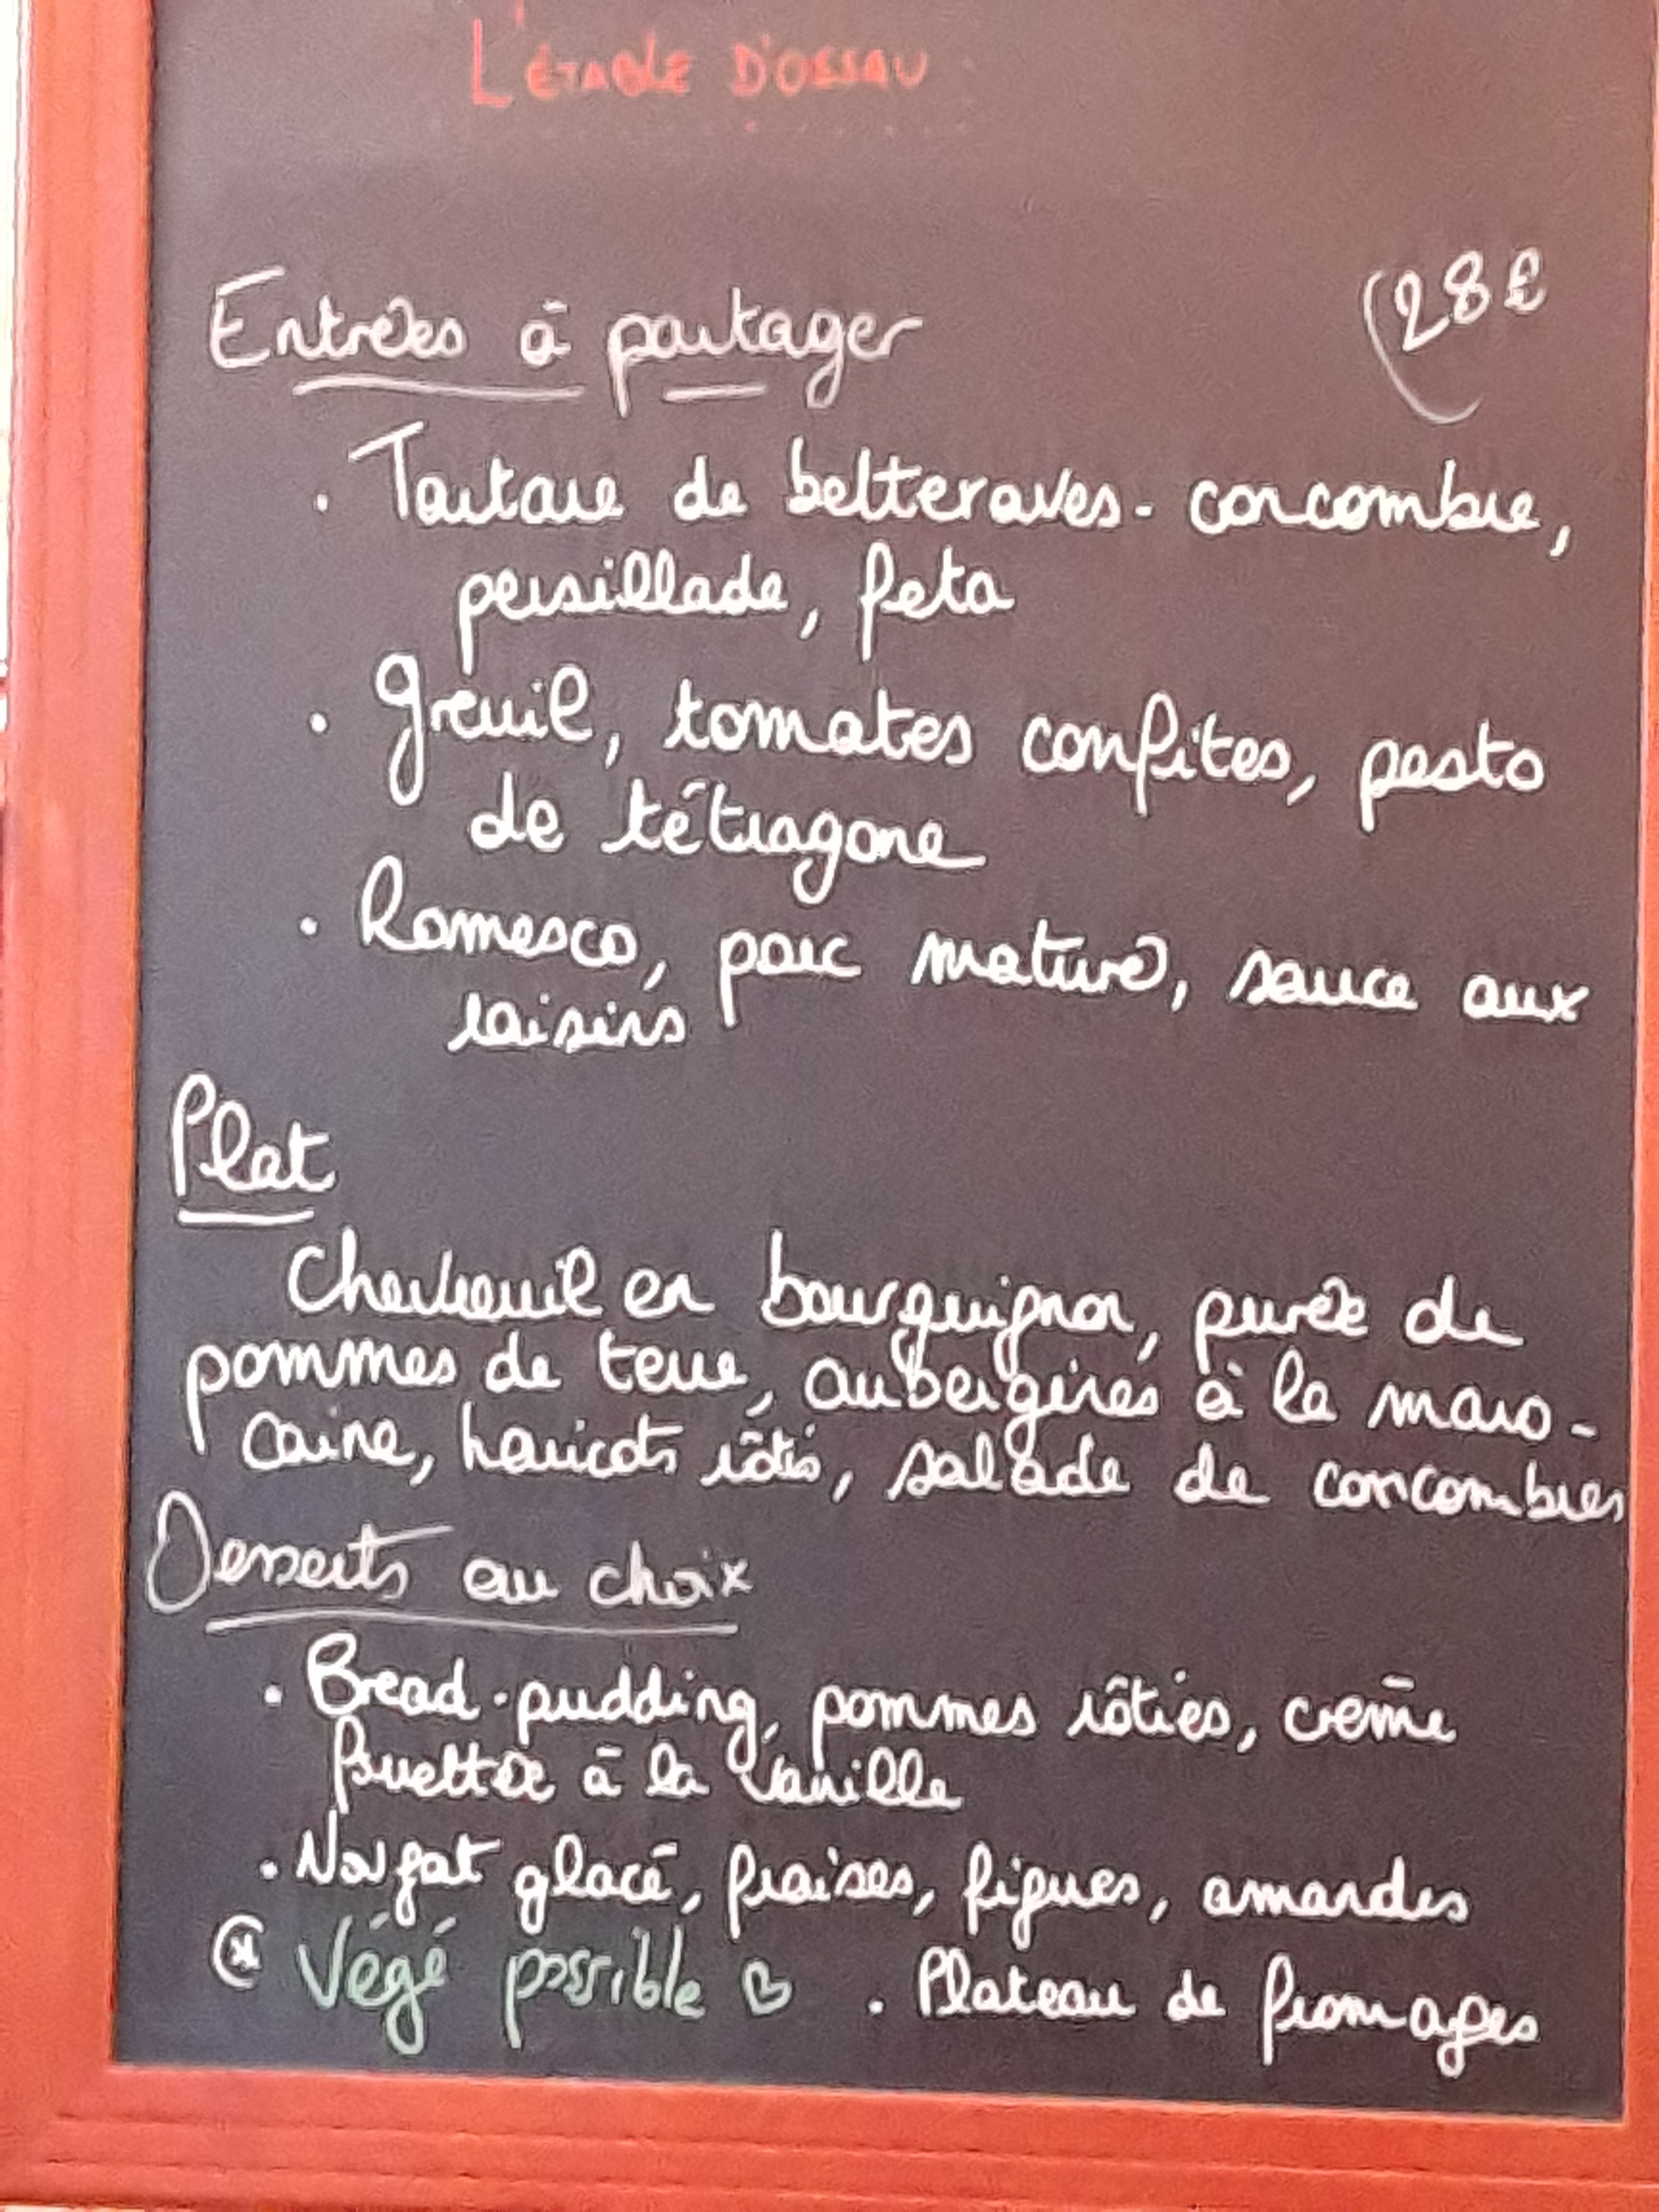 L'étable d'Ossau
Entrées à partager
28€
. Tartare de betteraves - concombre,
persillade, feta
. Greuil, tomates confites, pesto
de tétragone
. Romesco, porc maturé, sauce aux
raisins
Plat
Chevreuil en bourguignon, purée de
pommes de terre, aubergines à la maro-
caine, haricots rôtis, salade de concombres
Desserts au choix
. Bread-pudding, pommes rôties, crème
fouettée à la vanille
. Nougat glacé, fraises, figues, amandes
Végé possible ♡ . Plateau de fromages